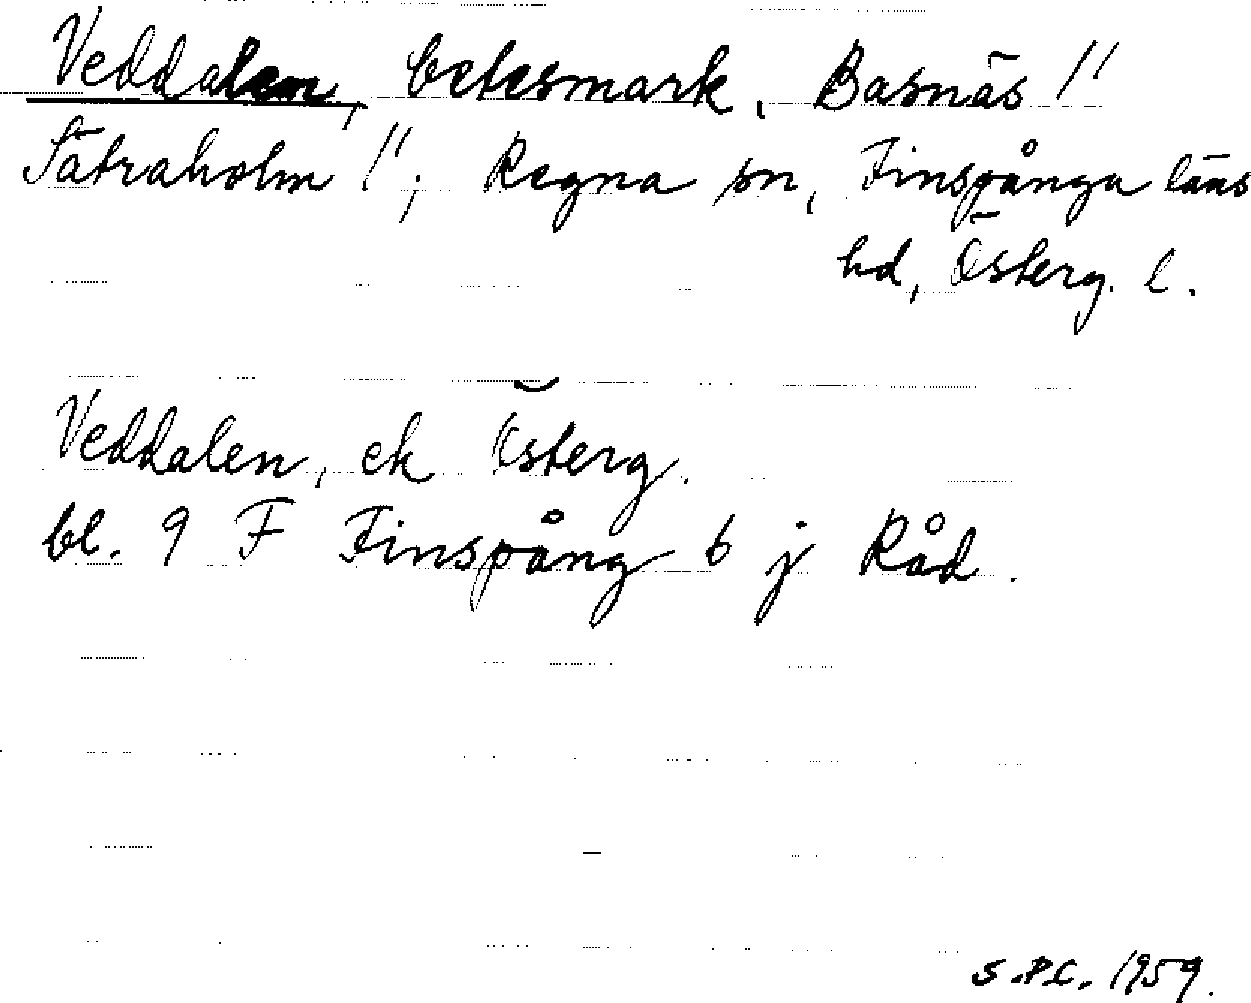 Veddalen, betesmark, Basnäs 1/1
Sätraholm 1/1; Regna sn, Finspånga läns
hd, Österg. l.
Veddalen, ek Österg.
bl. 9 F Finspång 6 j Råd.
S.P.C. 1959.